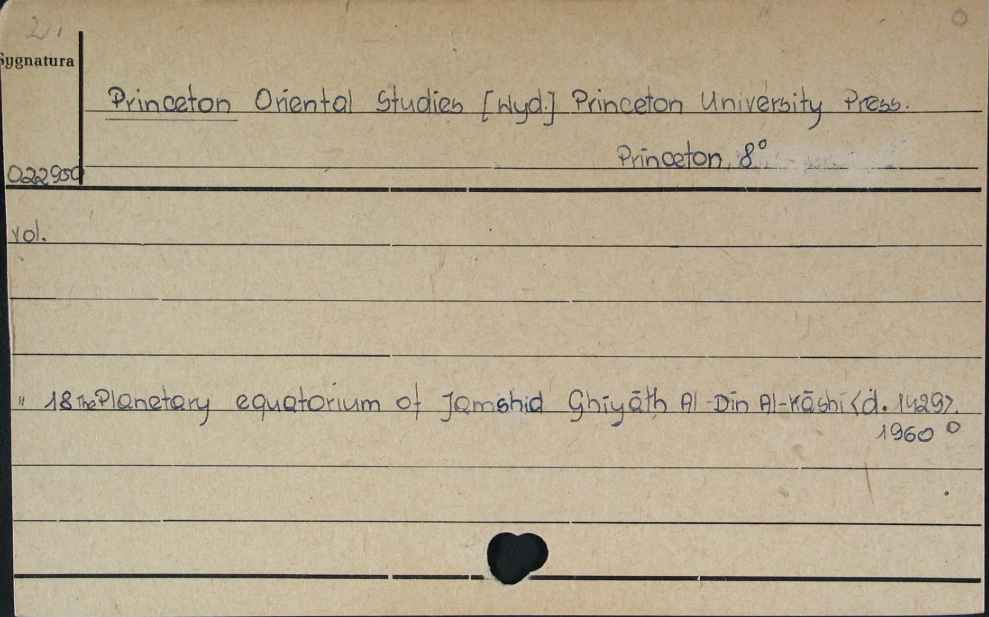 2.
Sygnatura
Princeton Oriental Studies [Wyd.] Princeton University Press.
Princeton, 8°
022950
vol.
" 18 The Planetary equatorium of Jamshid Ghiyāth Al-Din Al-Kāshi <d. 1429>.
1960 °